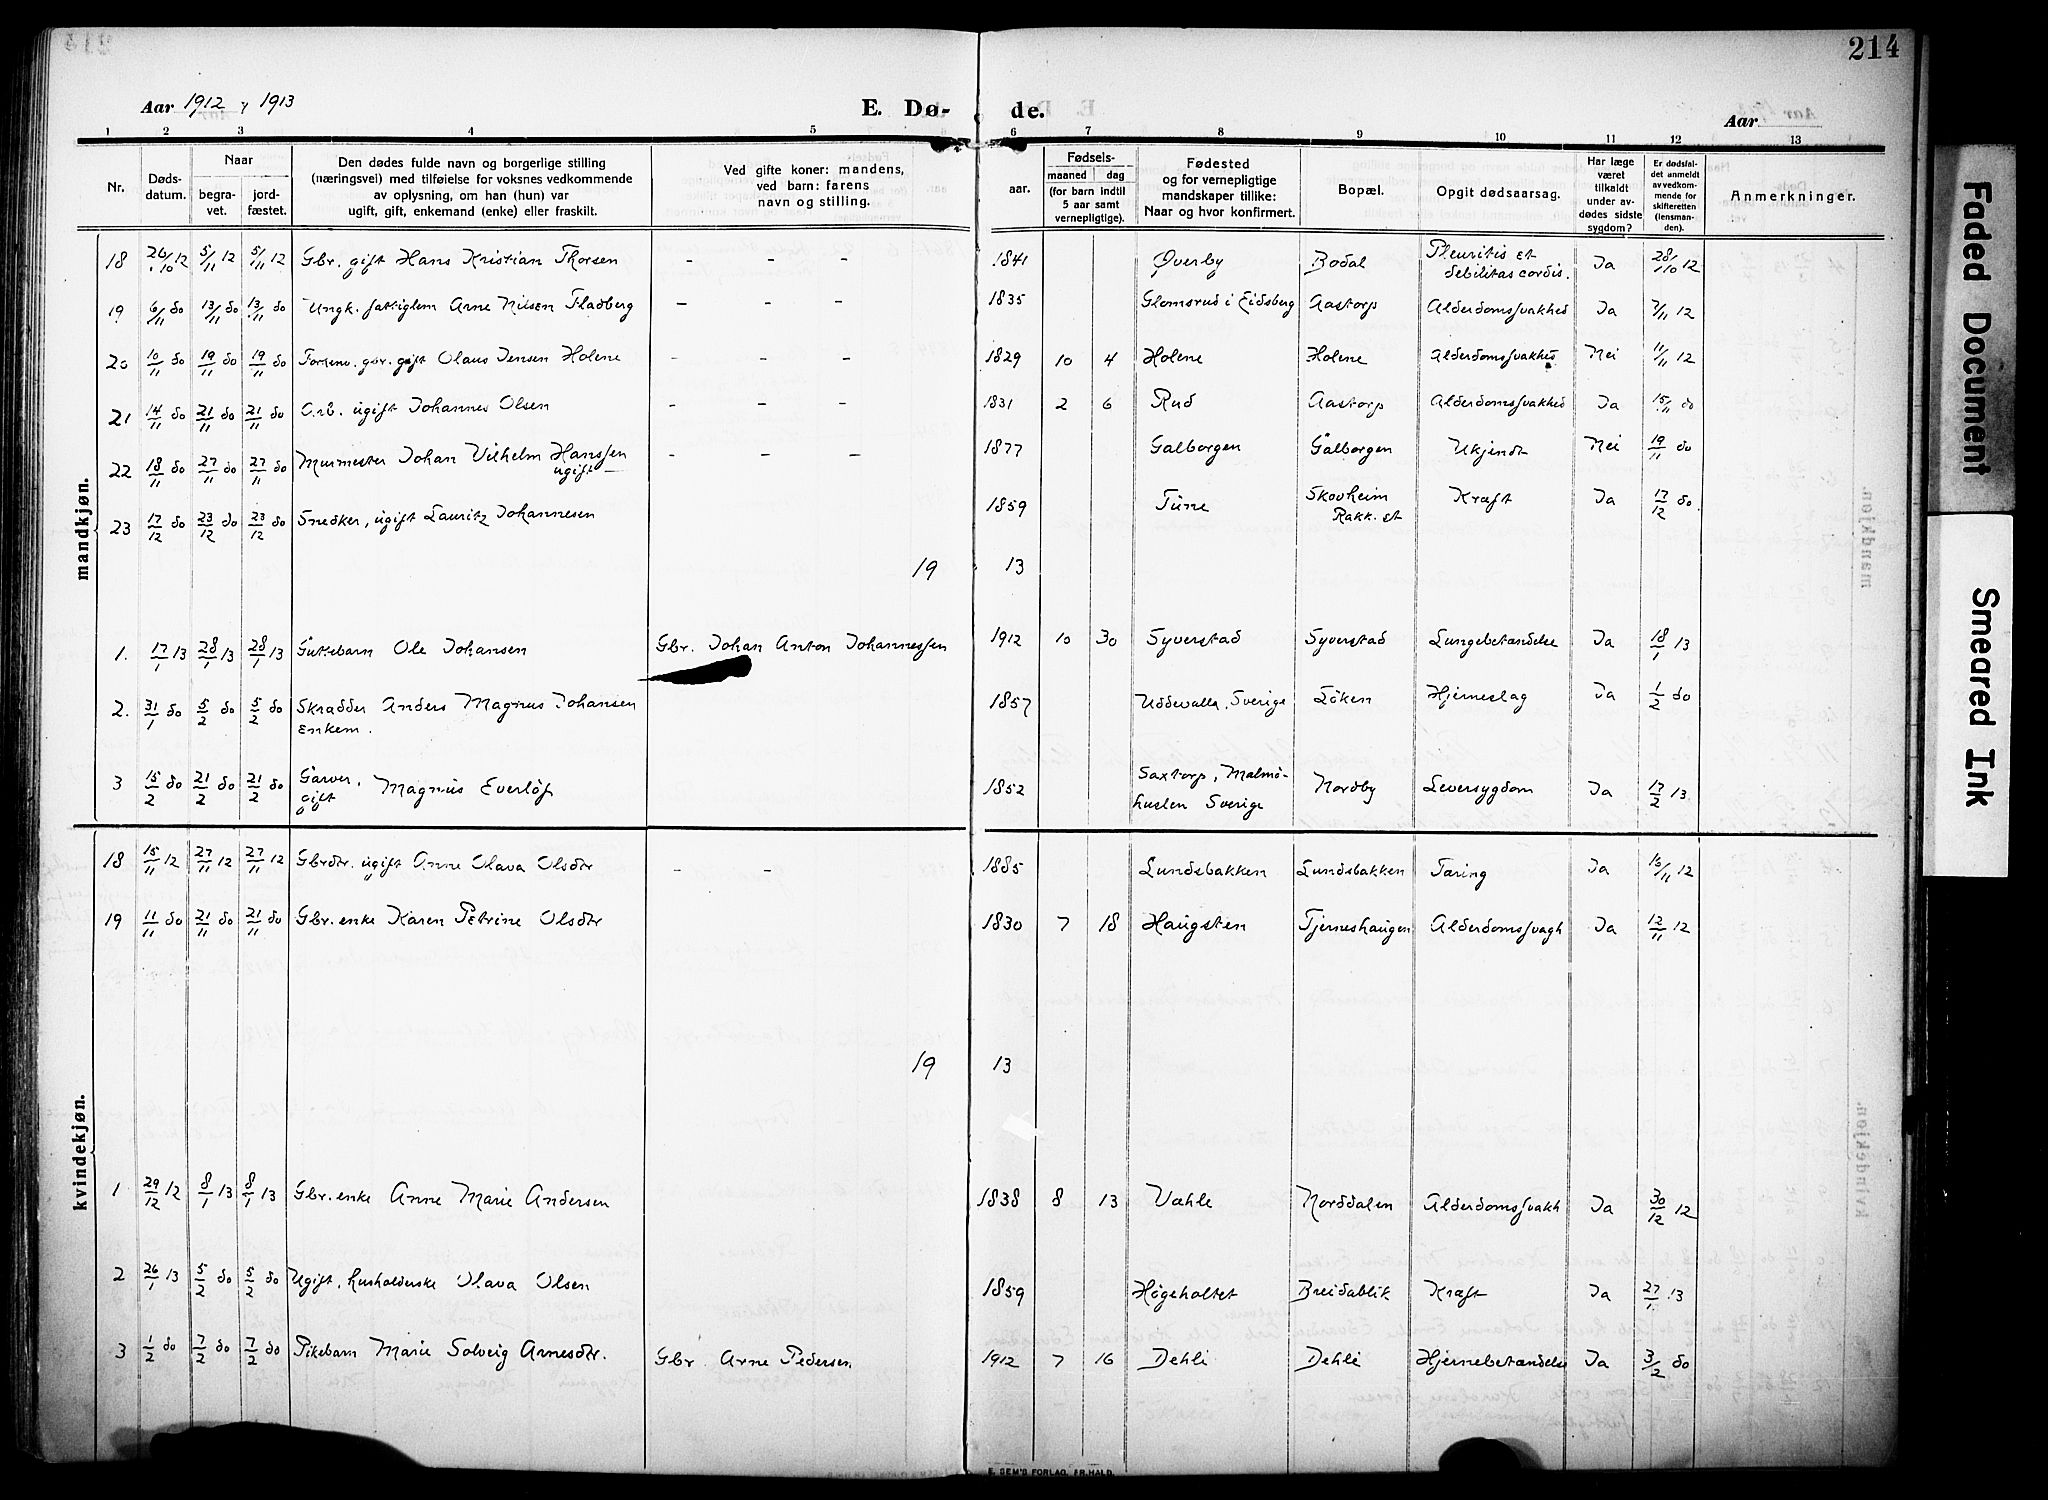 214
Aar 1912 , 1913 E. Dø- de. Aar
1 2 3 4 5 6 6 7 8 9 10 11 12 13
Nr. Døds-datum. Naar begra-vet. jord-fæstet. Den dødes fulde navn og borgerlige stilling (næringsvei) med tilføielse for voksnes vedkommende av oplysning, om han (hun) var ugift, gift, enkemand (enke) eller fraskilt. Ved gifte koner: mandens, ved barn: farens navn og stilling. aar. Fødsels- maaned dag (for barn indtil 5 aar samt vernepligtige). Fødested og for vernepligtige mandskaper tillike: Naar og hvor konfirmert. Bopæl. Opgit dødsaarsag. Har læge været tilkaldt under av-dødes sidste sygdom? Er dødsfal-det anmeldt av vedkom-mende for skifteretten (lensman-den). Anmerkninger.
mandkjøn.
18 26/10 12 5/11 12 5/11 12 Gbr. gift Hans Kristian Thorsen - - - 1841 Øverby Bodal Pleuritis et debilitas cordis. Ja 28/10 12
19 6/11 do 13/11 do 13/11 do Ungk. fattiglem Arne Nilsen Fladberg - - - 1835 Glomsrud i Eidsberg Aastorp Alderdomssvakhed Ja 7/11 12
20 10/11 do 19/11 do 19/11 do Forhenv. gbr. gift Olaus Jensen Holene - - - 1829 10 4 Holene Holene Alderdomssvakhed Nei 11/11 12
21 14/11 do 21/11 do 21/11 do Arb. ugift Johannes Olsen - - - 1831 2 6 Rud Aastorp Alderdomssvakhed Ja 15/11 do
22 18/11 do 27/11 do 27/11 do Murmester Johan Vilhelm Hanssen ugift - - - 1877 Galborgen Galborgen Ukjendt Nei 19/11 do
23 17/12 do 23/12 do 23/12 do Snedker, ugift Lauritz Johannesen 1859 Tune Skovheim Rakk. st Kræft Ja 17/12 do.
19 13
1. 17/1 13 28/1 13 28/1 13 Guttebarn Ole Johansen Gbr. Johan Anton Johannessen 1912 10 30 Syverstad Syverstad Lungebetændelse Ja 18/1 13
2. 31/1 do 5/2 do 5/2 do Skrædder Anders Magnus Johansen Enkem. 1857 Uddevalla, Sverige Löken Hjerneslag Ja 1/2 do
3 15/2 do 21/2 do 21/2 do Garver, gift Magnus Everlöf 1852 Saxtorp, Malmö-huslen Sverige Nordby Leversygdom Ja 17/2 13
kvindekjøn.
18 15/11 12 27/11 12 27/11 12 Gbrdtr. ugift Anne Olava Olsdtr - - 1885 Lundsbakken Lundsbakken Tæring Ja 15/11 12
19 11/11 do 21/11 do 21/11 do Gbr. enke Karen Petrine Olsdtr 1830 7 18 Haugsten Tjerneshaugen Alderdomssvagh Ja 12/11 12
19 13
1 29/12 12 8/1 13 8/1 13 Gbr. enke Anne Marie Andersen 1838 8 13 Væhle Norddalen Alderdomssvakh Ja 30/12 12
2 26/1 13 5/2 do 5/2 do Ugift, husholderske Olava Olsen 1859 Høgeholtet Breidablik Kræft Ja 27/1 13
3 1/2 do 7/2 do 7/2 do Pikebarn Marie Solveig Arnesdtr. Gbr. Arne Pedersen 1912 7 16 Dehli Dehli Hjernebetændelse Ja 3/2 do
E. SEM'S FORLAG, FR.HALD.
Faded Document
Smeared Ink